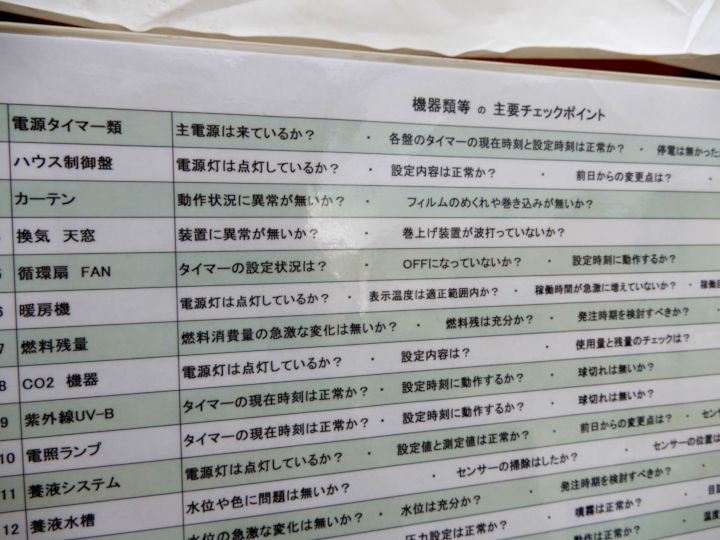 機器類等 の 主要チェックポイント
電源タイマー類 主電源は来ているか？ ・ 各盤のタイマーの現在時刻と設定時刻は正常か？ ・ 停電は無かった
ハウス制御盤 電源灯は点灯しているか？ ・ 設定内容は正常か？ ・ 前日からの変更点は？ ・
カーテン 動作状況に異常が無いか？ ・ フィルムのめくれや巻き込みが無いか？
換気 天窓 装置に異常が無いか？ ・ 巻上げ装置が波打っていないか？
循環扇 FAN タイマーの設定状況は？ ・ OFFになっていないか？ ・ 設定時刻に動作するか？
6 暖房機 電源灯は点灯しているか？ ・ 表示温度は適正範囲内か？ ・ 稼働時間が急激に増えていないか？ ・ 稼働
7 燃料残量 燃料消費量の急激な変化は無いか？ ・ 燃料残は充分か？ ・ 発注時期を検討すべきか？
8 CO2 機器 電源灯は点灯しているか？ ・ 設定内容は？ ・ 使用量と残量のチェックは？
9 紫外線UV-B タイマーの現在時刻は正常か？ ・ 設定時刻に動作するか？ ・ 球切れは無いか？
10 電照ランプ タイマーの現在時刻は正常か？ ・ 設定時刻に動作するか？ ・ 球切れは無いか？
11 養液システム 電源灯は点灯しているか？ ・ 設定値と測定値は正常か？ ・ 前日からの変更点は？ ・ セン
12 養液水槽 水位や色に問題は無いか？ ・ センサーの掃除はしたか？ ・ センサーの位置は
水位の急激な変化は無いか？ ・ 水位は充分か？ ・ 発注時期を検討すべきか？
圧力設定は正常か？ ・ 噴霧は正常か？ ・
動作は正常か？ ・ 温度